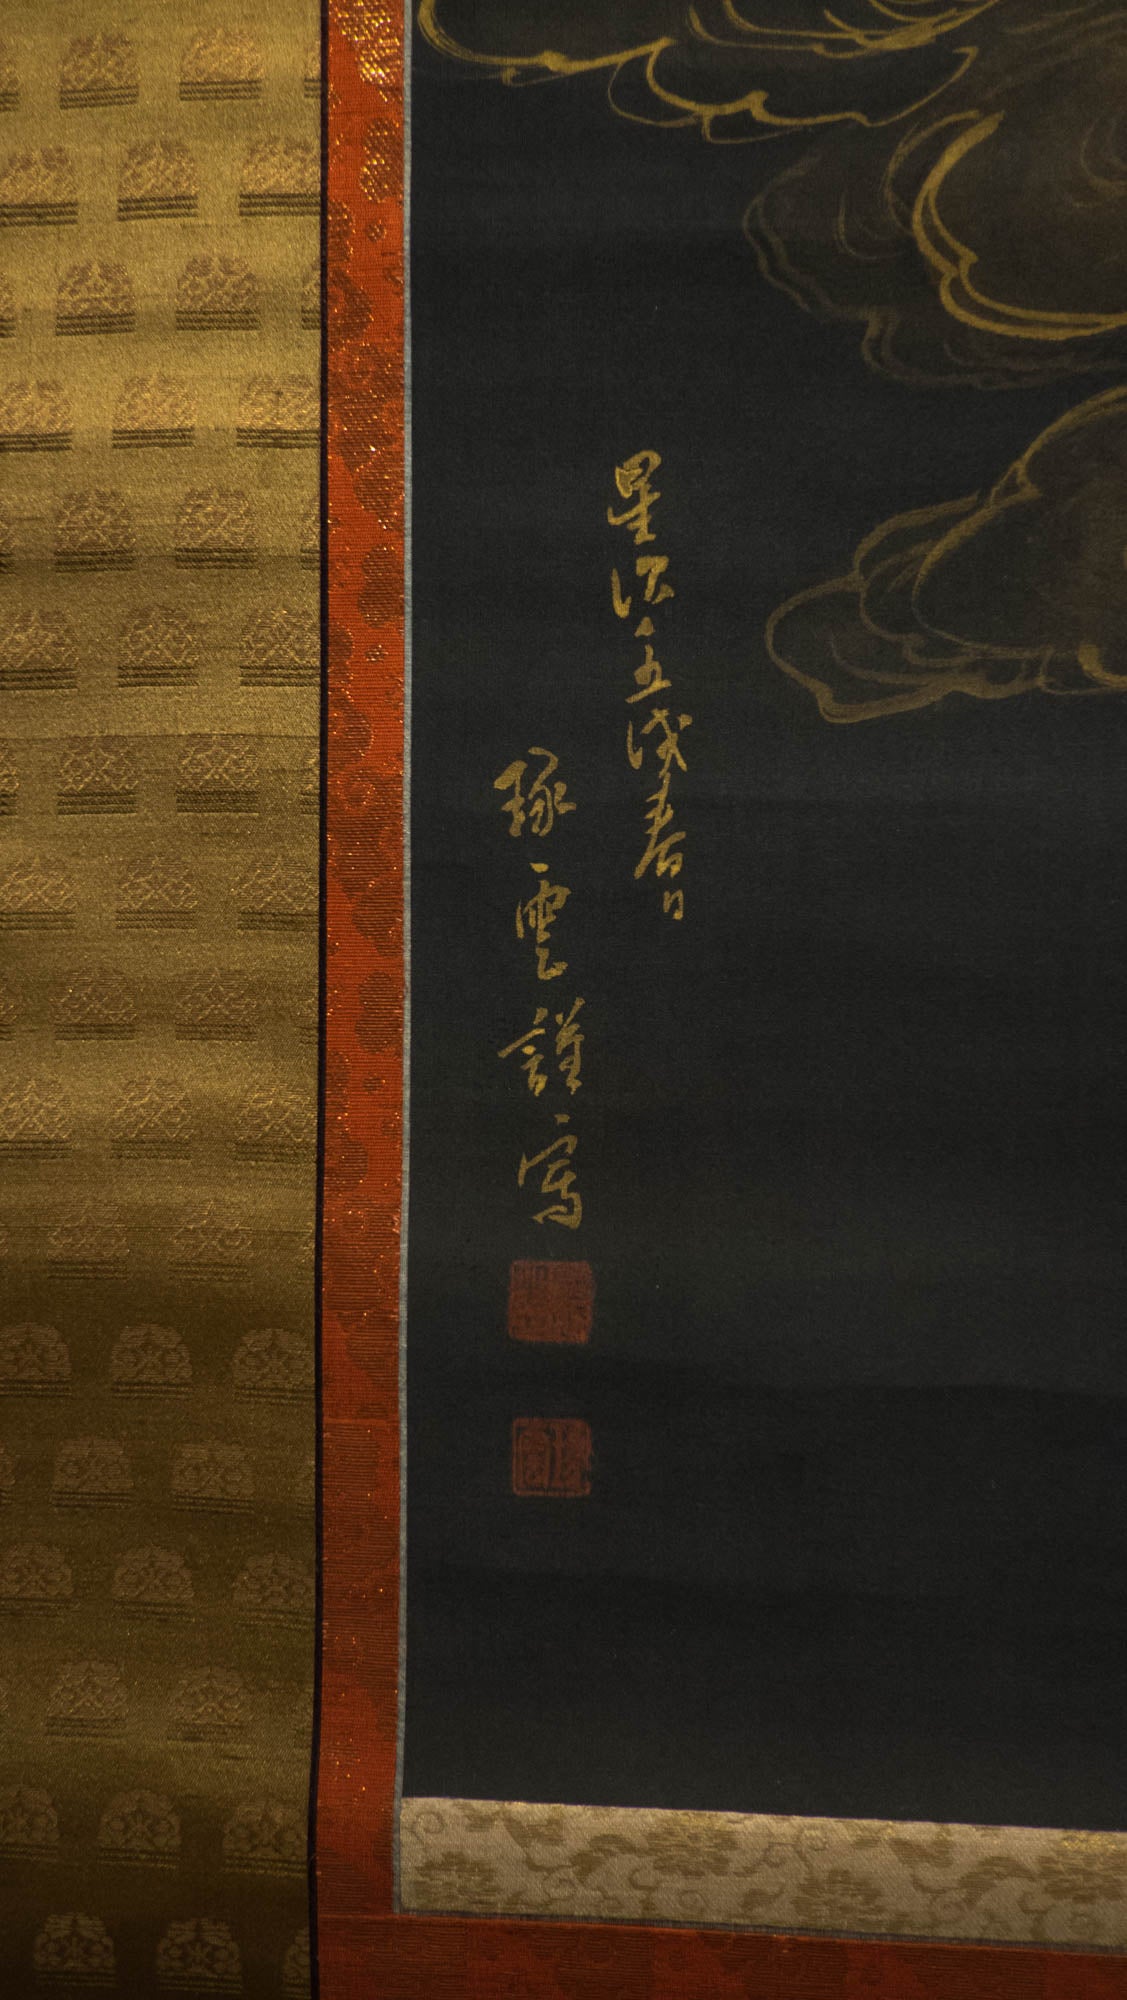 星次壬戌春日
琢雲謹寫